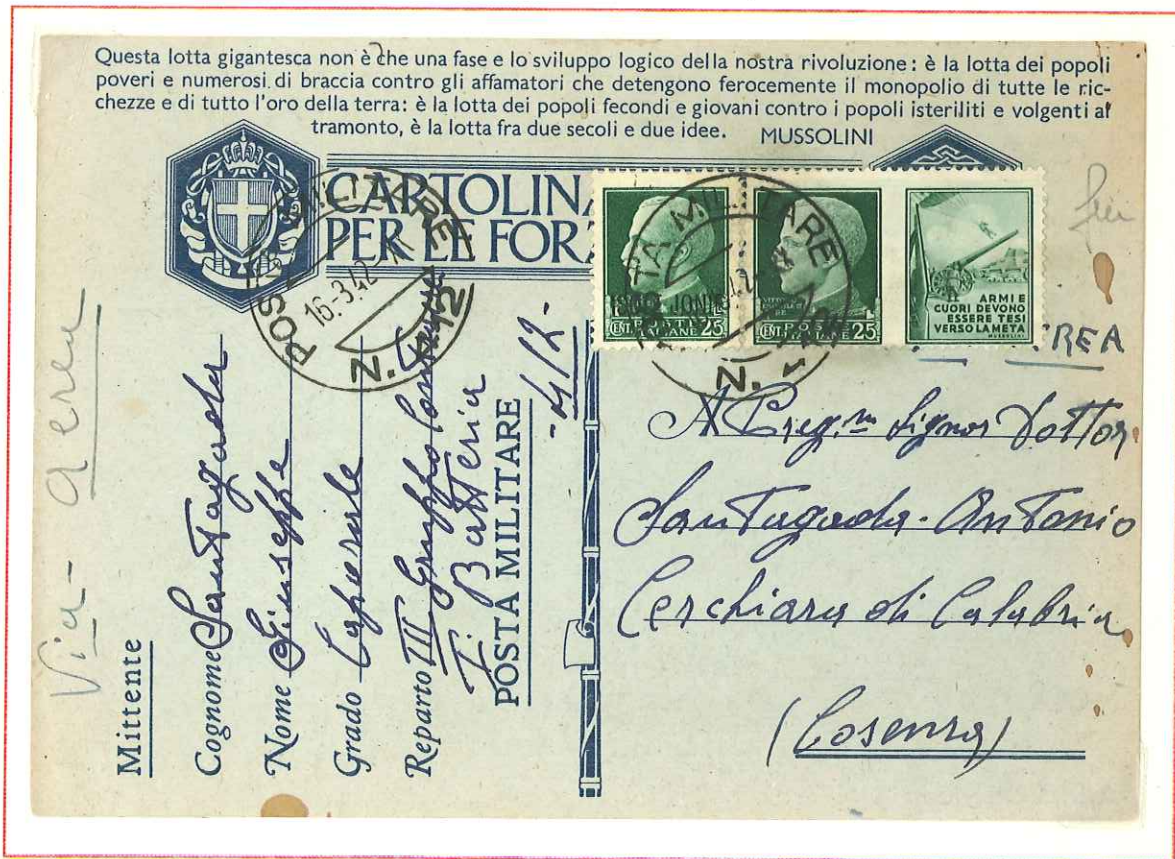 Questa lotta gigantesca non è che una fase e lo sviluppo logico della nostra rivoluzione: è la lotta dei popoli
poveri e numerosi di braccia contro gli affamatori che detengono ferocemente il monopolio di tutte le ric-
chezze e di tutto l'oro della terra: è la lotta dei popoli fecondi e giovani contro i popoli isteriliti e volgenti al
tramonto, è la lotta fra due secoli e due idee. MUSSOLINI
CARTOLINA
PER LE FORZ
POSTA MILITARE
16-3.42
N. 412
POSTA MILITARE
N.
CENT. POSTE ITALIANE 25
CENT. POSTE ITALIANE 25
ARMI E
CUORI DEVONO
ESSERE TESI
VERSO LA META
MUSSOLINI
REA
Via - aerea
Mittente
Cognome Santagada
Nome Giuseppe
Grado Caporale
Reparto III Gruppo
I Batteria
POSTA MILITARE -412-
Al Preg.mo Signor Dottor
Santagada Antonio
Cerchiara di Calabria
(Cosenza)